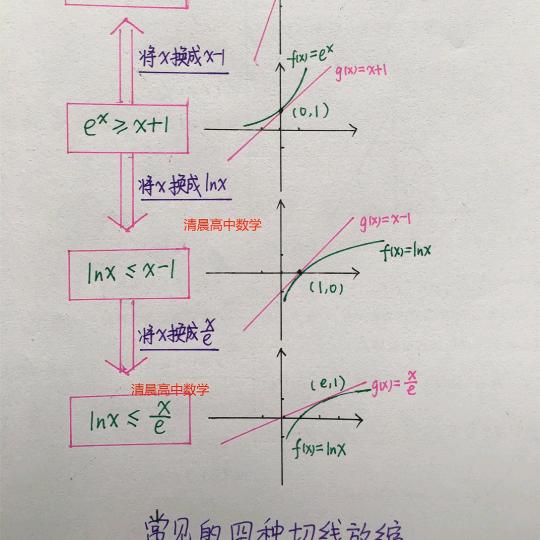 将x换成x-1
f(x)=eˣ
g(x)=x+1
eˣ ≥ x+1
(0,1)
将x换成lnx
清晨高中数学
g(x)=x-1
f(x)=lnx
lnx ≤ x-1
(1,0)
将x换成x/e
清晨高中数学
(e,1)
g(x)=x/e
lnx ≤ x/e
f(x)=lnx
常见的四种切线放缩